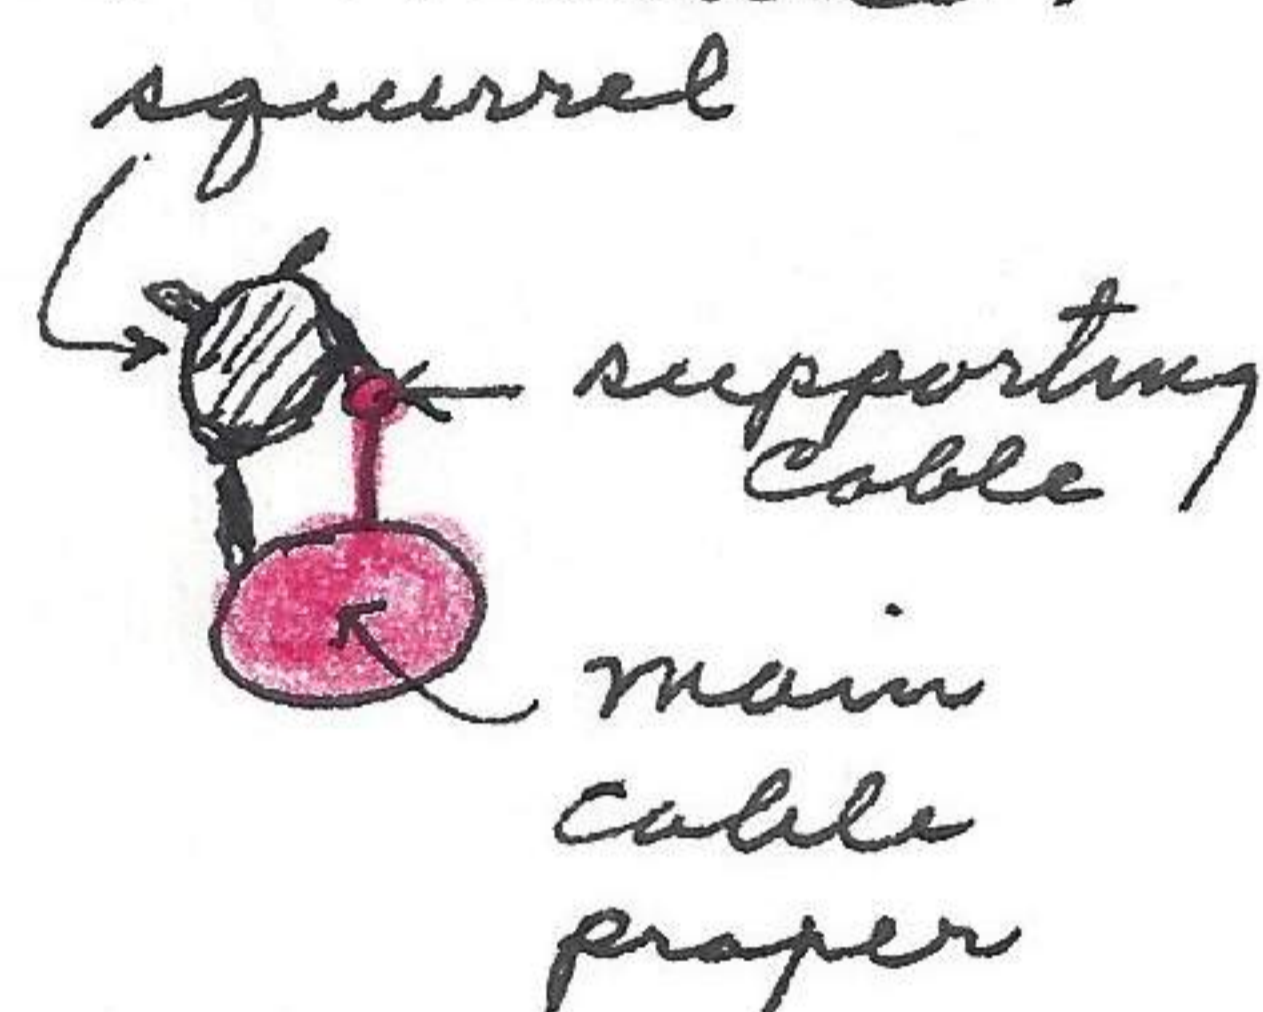 squirrel
supporting
cable
main
cable
proper